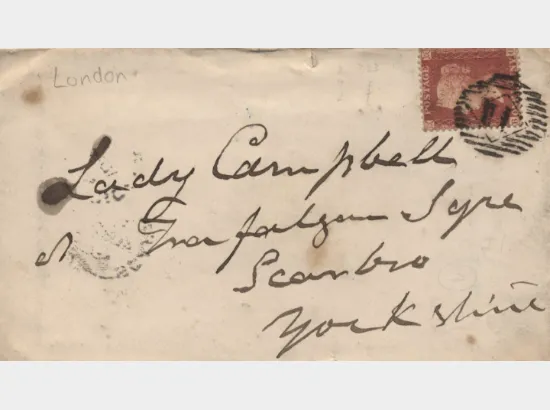 London
POSTAGE
11
Lady Campbell
Trafalgar Sqre
Scarbro
Yorkshire